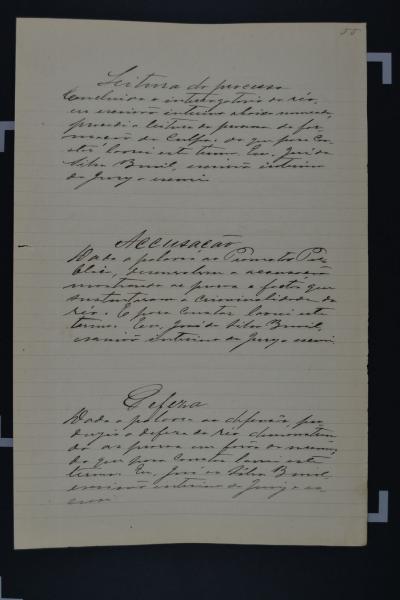 55
Leitura do processo
Concluido o interrogatorio do réo,
eu escrivão interino abaixo nomeado,
procedi a leitura do processo de for
mação da culpa. do que para cons
tar lavrei este termo. Eu, José da
Silva Brasil, escrivão interino
do Jury o escrevi
Accusação
Dada a palavra ao Promotor Pu
blico, desenvolveu a accusação
mostrando as provas e factos que
sustentaram a criminalidade do
réo. E para constar lavrei este
termo. Eu, José da Silva Brasil,
escrivão interino do Jury o escrevi
Defeza
Dada a palavra ao defensor, pro
duziu a defeza do réo demonstran
do as provas em favor do mesmo,
do que para constar lavrei este
termo. Eu, José da Silva Brasil,
escrivão interino do Jury o es
crevi